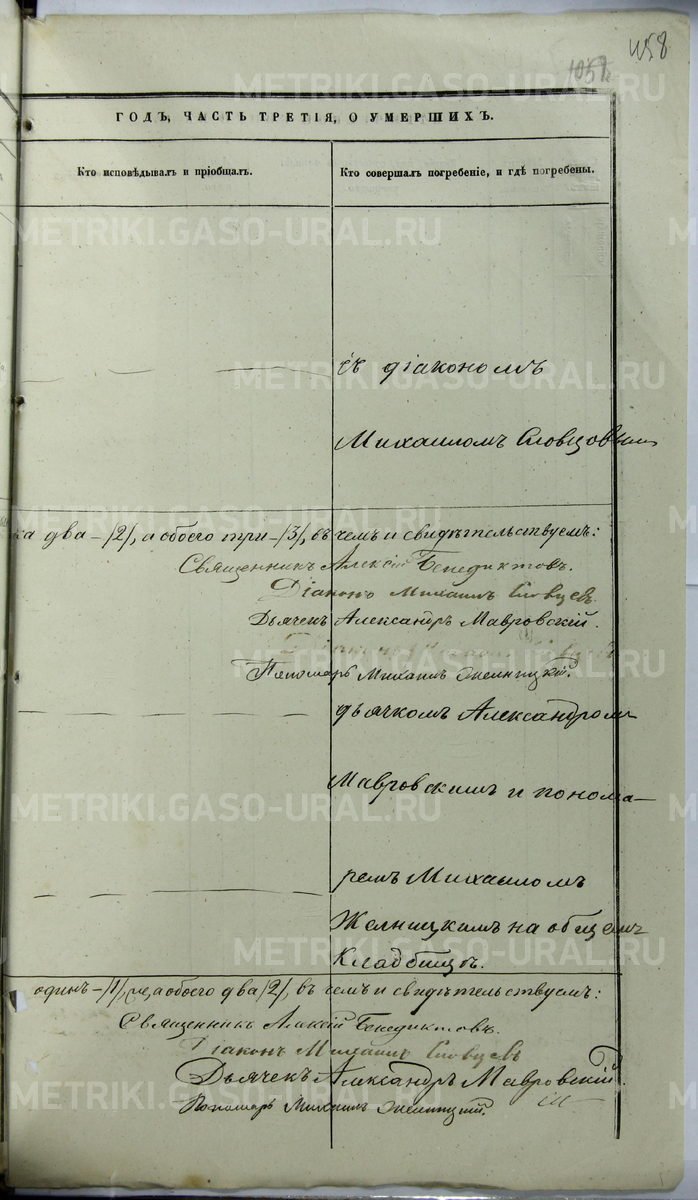 458
1057
ГОДЪ, ЧАСТЬ ТРЕТІЯ, О УМЕРШИХЪ.
Кто исповѣдывалъ и пріобщалъ.
Кто совершалъ погребеніе, и гдѣ погребены.
съ діакономъ
Михаиломъ Словцовымъ
ка два - /2/, а обоего три - /3/, въ чемъ и свидѣтельствуемъ:
Священникъ Алексій Бенедиктовъ.
Діаконъ Михаилъ Словцевъ.
Дьячекъ Александръ Мавровскій.
Пономарь Михаилъ Желницкій.
дьячкомъ Александромъ
Мавровскимъ и понома-
ремъ Михаиломъ
Желницкимъ на общемъ
Кладбищѣ.
одинъ - /1/, а обоего два /2/, въ чемъ и свидѣтельствуемъ:
Священникъ Алексій Бенедиктовъ.
Діаконъ Михаилъ Словцевъ
Дьячекъ Александръ Мавровскій.
Пономарь Михаилъ Желницкій.
METRIKI.GASO-URAL.RU